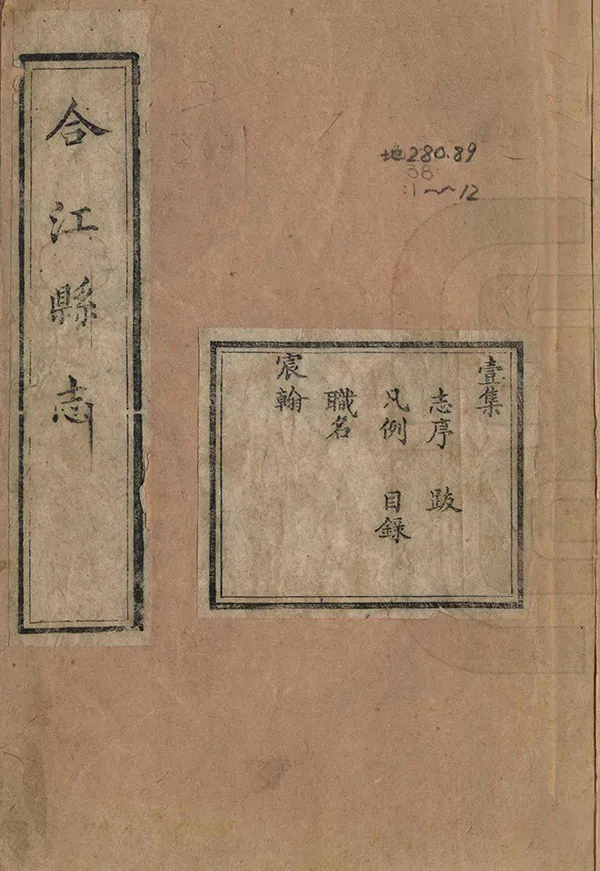 合江縣志
地280.89
38
:1~12
壹集
志序 跋
凡例 目錄
職名
宸翰